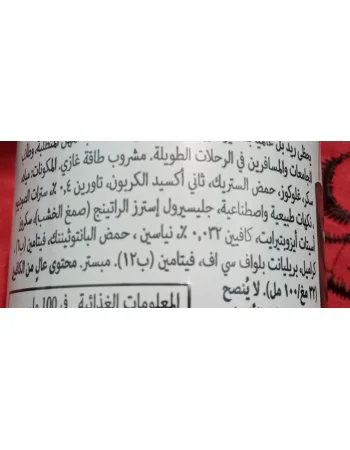 يعطي ريد بل
الجامعات والمسافرين في الرحلات الطويلة. مشروب طاقة غازي. المكونات: مياه،
سكر، غلوكوز، حمض الستريك، ثاني أكسيد الكربون، تاورين ٠,٤ ٪، سترات الصوديوم
، نكهات طبيعية واصطناعية، جليسيرول إسترز الراتينج (صمغ الخشب)، سكروز
أسيتات أيزوبتيرايت، كافين ٠,٠٣٢ ٪، نياسين، حمض البانتوثيننك، فيتامين (ب٦)،
كراميل، بريليانت بلواف سي اف، فيتامين (ب١٢). مبستر. محتوى عالٍ من الكافيين
(٣٢ مغ/١٠٠ مل). لا يُنصح
المعلومات الغذائية في 100 مل